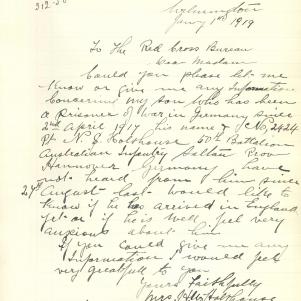 212-30
Jany 1st 1919
To The Red Cross Bureau
Dear Madam
Could you please let me
Know or give me any Information
Concerning my son who has been
a Prisoner of War in Germany since
2nd April 1917 his name & No, 2424
Pt N. S. Holthouse 50th Battalion
Australian Infantry
Hannover Germany have
not heard from him since
24th August last would like to
Know if he has arrived in England
yet or if he is well feel very
anxious about him
If you could give me any
Information I would feel
very greatfull to you
Yours Faithfully
Mrs Holthouse